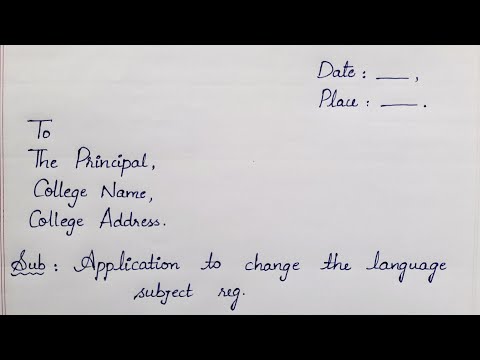 Date : ___ ,
Place : ___ .
To
The Principal,
College Name,
College Address.
Sub : Application to change the language
subject reg.